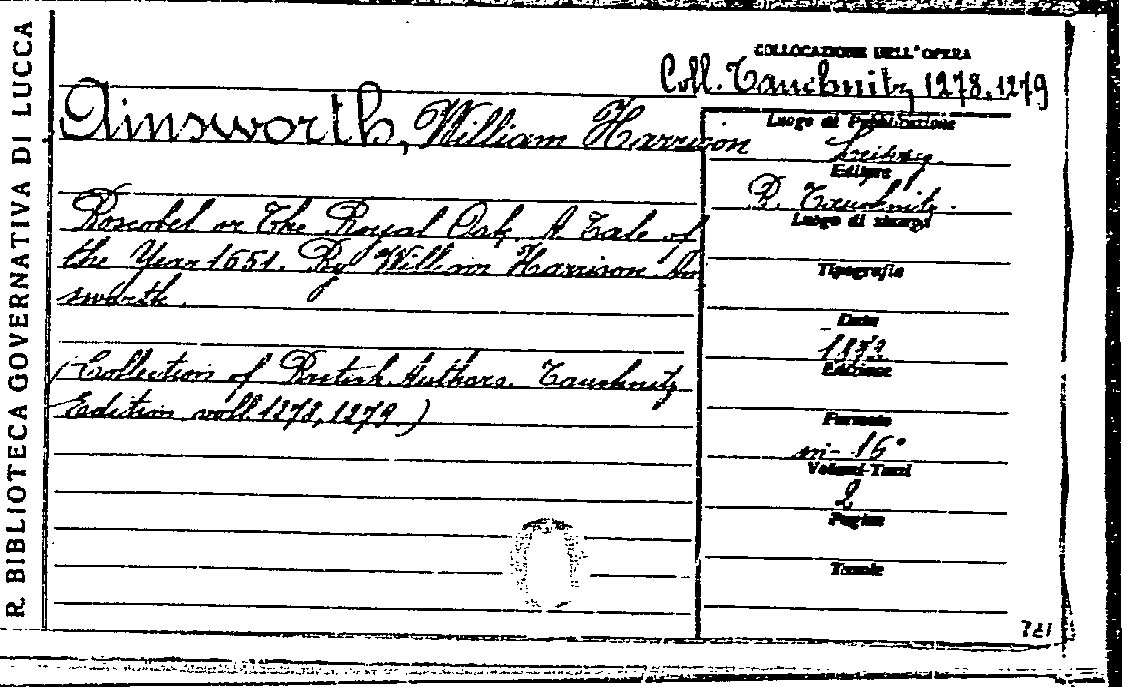 R. BIBLIOTECA GOVERNATIVA DI LUCCA
COLLOCAZIONE DELL'OPERA
Coll. Tauchnitz 1278, 1279
Ainsworth, William Harrison
Boscobel or The Royal Oak. A Tale of
the Year 1651. By William Harrison Ain
sworth.
(Collection of British Authors. Tauchnitz
Edition voll. 1278, 1279)
Luogo di Pubblicazione
Leipzig.
Editore
B. Tauchnitz.
Luogo di stampa
Tipografia
Data
Edizione
Formato
in-16°
Volumi-Tomi
2
Pagine
Tavole